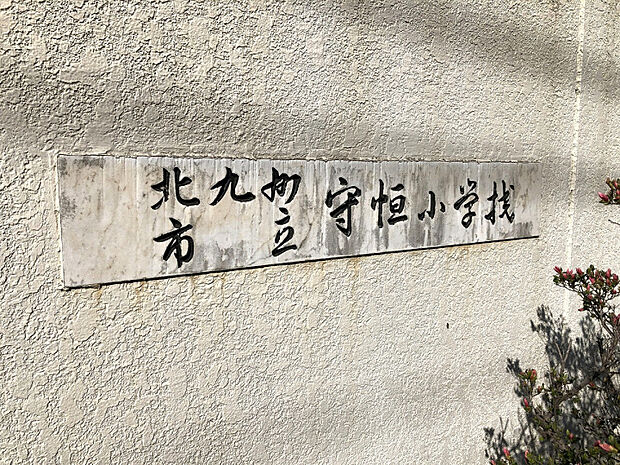 北九州
市立
守恒小学校